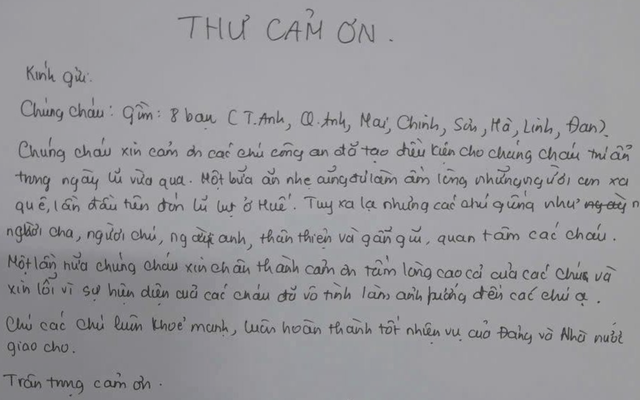 THƯ CẢM ƠN.
Kính gửi:
Chúng cháu: Gồm: 8 bạn (T.Anh, Q.Anh, Mai, Chinh, Sơn, Hà, Linh, Đan).
Chúng cháu xin cảm ơn các chú công an đã tạo điều kiện cho chúng cháu trú ẩn
trong ngày lũ vừa qua. Một bữa ăn nhẹ cũng đủ làm ấm lòng những người con xa
quê, lần đầu tiên đón lũ lụt ở Huế. Tuy xa lạ nhưng các chú giống như
người cha, người chú, người anh, thân thiện và gần gũi, quan tâm các cháu.
Một lần nữa chúng cháu xin chân thành cảm ơn tấm lòng cao cả của các chú và
xin lỗi vì sự hiện diện của các cháu đã vô tình làm ảnh hưởng đến các chú ạ.
Chú các chú luôn khoẻ mạnh, luôn hoàn thành tốt nhiệm vụ của Đảng và Nhà nước
giao cho.
Trân trọng cảm ơn.